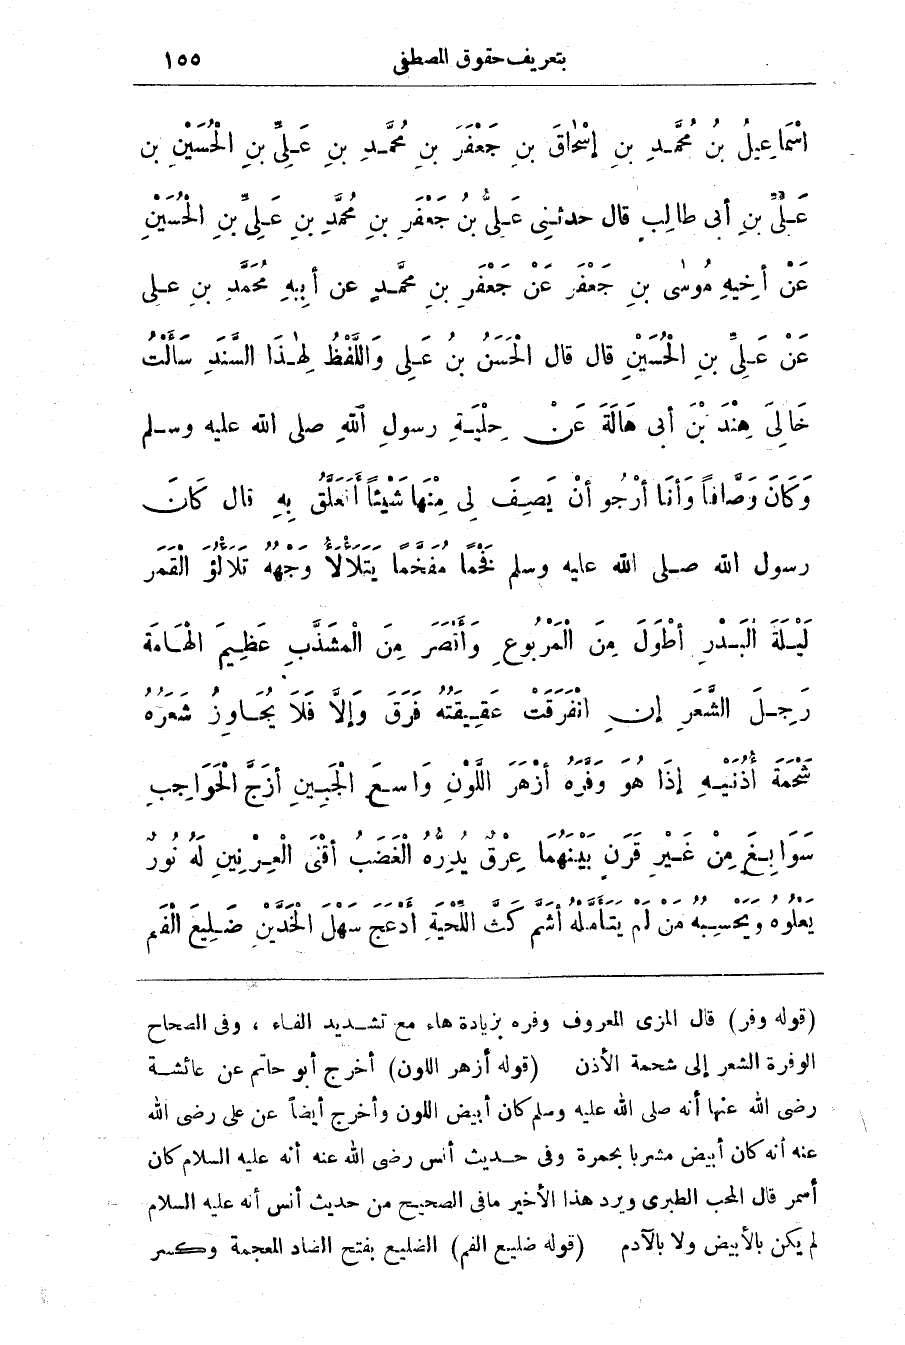 بتعريف حقوق المصطفى ١٥٥
اسْمَاعِيلُ بنُ مُحَمَّدِ بنِ إسْحَاقَ بنِ جَعْفَرِ بنِ مُحَمَّدِ بنِ عَلِيِّ بنِ الْحُسَيْنِ بن
عَلِيِّ بنِ أبى طالِبٍ قال حدثنِى عَلِىُّ بنُ جَعْفَرِ بنِ مُحَمَّدِ بنِ عَلِيِّ بنِ الْحُسَيْنِ
عَنْ أخِيهِ مُوسَى بنِ جَعْفَرٍ عَنْ جَعْفَرِ بنِ محمَّدٍ عن أبِيهِ مُحَمَّدِ بنِ علِى
عَنْ عَلِيِّ بنِ الْحُسَيْنِ قال قال الْحَسَنُ بنُ عَلِى وَاللَّفْظُ لِهٰذَا السَّنَدِ سَأَلْتُ
خَالِىَ هِنْدَ بْنَ أبى هَالَةَ عَنْ حِلْيَةِ رسولِ اللهِ صلى الله عليه وسلم
وَكَانَ وَصَّافاً وَأنَا أرْجُو أنْ يَصِفَ لِى مِنْهَا شَيْئاً أتَعَلَّقُ بِهِ قال كَانَ
رسول الله صلى الله عليه وسلم فَخْمًا مُفَخَّمًا يَتَلَأْلَأُ وَجْهُهُ تَلَأْلُؤَ الْقَمَرِ
لَيْلَةَ الْبَدْرِ أطْوَلَ مِنَ الْمَرْبُوعِ وَأَقْصَرَ مِنَ الْمشَذَّبِ عَظِيمَ الْهَامَةِ
رَجِلَ الشَّعَرِ إنِ انْفَرَقَتْ عَقِيقَتُهُ فَرَقَ وَإلَّا فَلَا يُجَاوِزُ شَعَرُهُ
شَحْمَةَ أُذُنَيْهِ إذَا هُوَ وَفَّرَهُ أزْهَرَ اللَّوْنِ وَاسعَ الْجَبِينِ أزَجَّ الْحَوَاجِبِ
سَوَابِغَ مِنْ غَيْرِ قَرَنٍ بَيْنَهُمَا عِرْقٌ يُدِرُّهُ الْغَضَبُ أقْنَى الْعِرْنِينِ لَهُ نُورٌ
يَعْلُوهُ وَيَحْسِبُهُ مَنْ لَمْ يَتَأَمَّلْهُ أشَمَّ كَثَّ اللِّحْيَةِ أَدْعَجَ سَهْلَ الْخَدَّيْنِ ضَلِيعَ الْفَمِ
(قوله وفر) قال المزى المعروف وفره بزيادة هاء مع تشديد الفاء ، وفى الصحاح
الوفرة الشعر إلى شحمة الأذن (قوله أزهر اللون) أخرج أبو حاتم عن عائشة
رضى الله عنها أنه صلى الله عليه وسلم كان أبيض اللون وأخرج أيضاً عن على رضى الله
عنه أنه كان أبيض مشربا بحمرة وفى حديث أنس رضى الله عنه أنه عليه السلام كان
أسمر قال المحب الطبرى ويرد هذا الأخير مافى الصحيح من حديث أنس أنه عليه السلام
لم يكن بالأبيض ولا بالآدم (قوله ضليع الفم) الضليع بفتح الضاد المعجمة وكسر